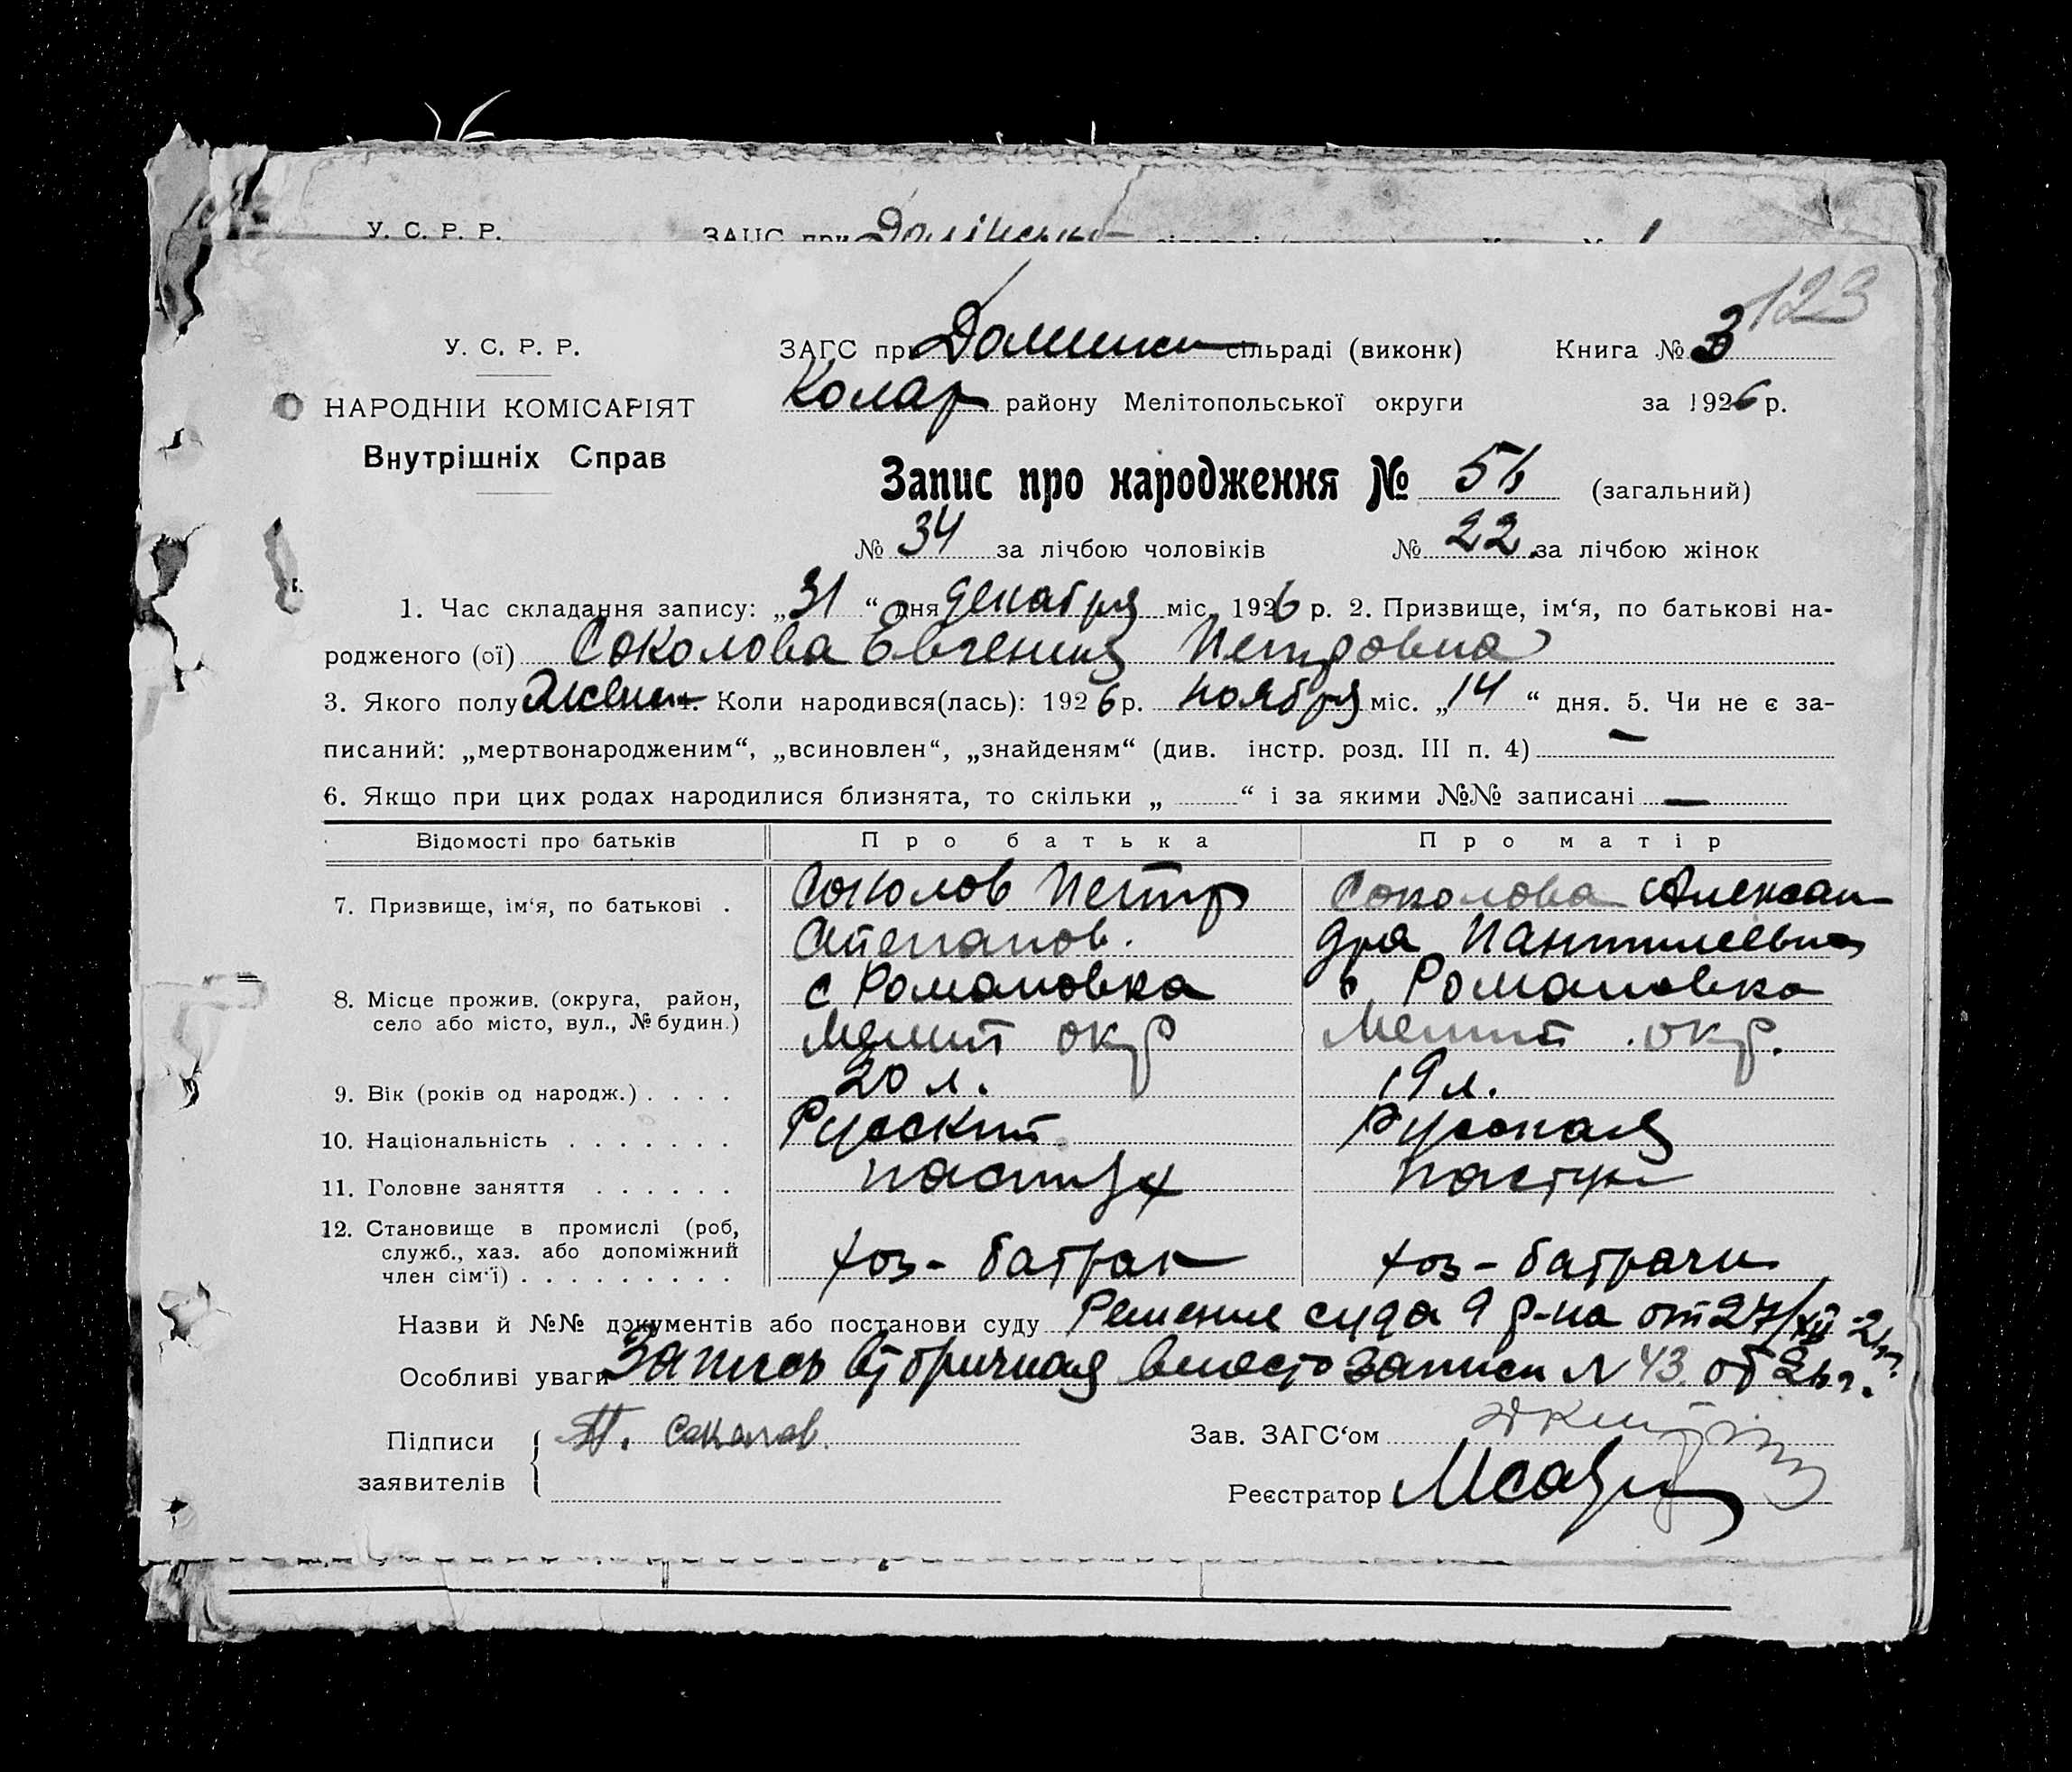 У. С. Р. Р.
123
У. С. Р. Р.
ЗАГС при Долинск сільраді (виконк) Книга № 3
НАРОДНІЙ КОМІСАРІЯТ
Колар району Мелітопольської округи за 1926 р.
Внутрішніх Справ
Запис про народження № 56 (загальний)
№ 34 за лічбою чоловіків № 22 за лічбою жінок
1. Час складання запису: „31“ дня декабря міс. 1926 р. 2. Призвище, ім‘я, по батькові на-
родженого (ої) Соколова Евгения Петровна
3. Якого полу женск 4. Коли народився(лась): 1926 р. ноября міс. „14“ дня. 5. Чи не є за-
писаний: „мертвонародженим“, „всиновлен“, „знайденям“ (див. інстр. розд. III п. 4) —
6. Якщо при цих родах народилися близнята, то скільки „ “ і за якими №№ записані —
Відомості про батьків Про батька Про матір
7. Призвище, ім‘я, по батькові . Соколов Петр Соколова Алексан
Степанов. дра Пантилеевна
8. Місце прожив. (округа, район, с Романовка с Романовка
село або місто, вул., № будин.) Мелит окр Мелит. окр.
9. Вік (років од народж.) . . . . 20 л. 19 л.
10. Національність . . . . . . . Русский Русская
11. Головне заняття . . . . . . пастух пастух
12. Становище в промислі (роб,
служб., хаз. або допоміжний хоз - батрак хоз - батрачи
член сім‘ї) . . . . . . . . .
Назви й №№ документів або постанови суду Решение суда 9 р-на от 27/XII-26 г.
Особливі уваги Запись вторичная вместо записи N 43 от 26 г.
Підписи П. Соколов. Зав. ЗАГС‘ом
заявителів Реєстратор